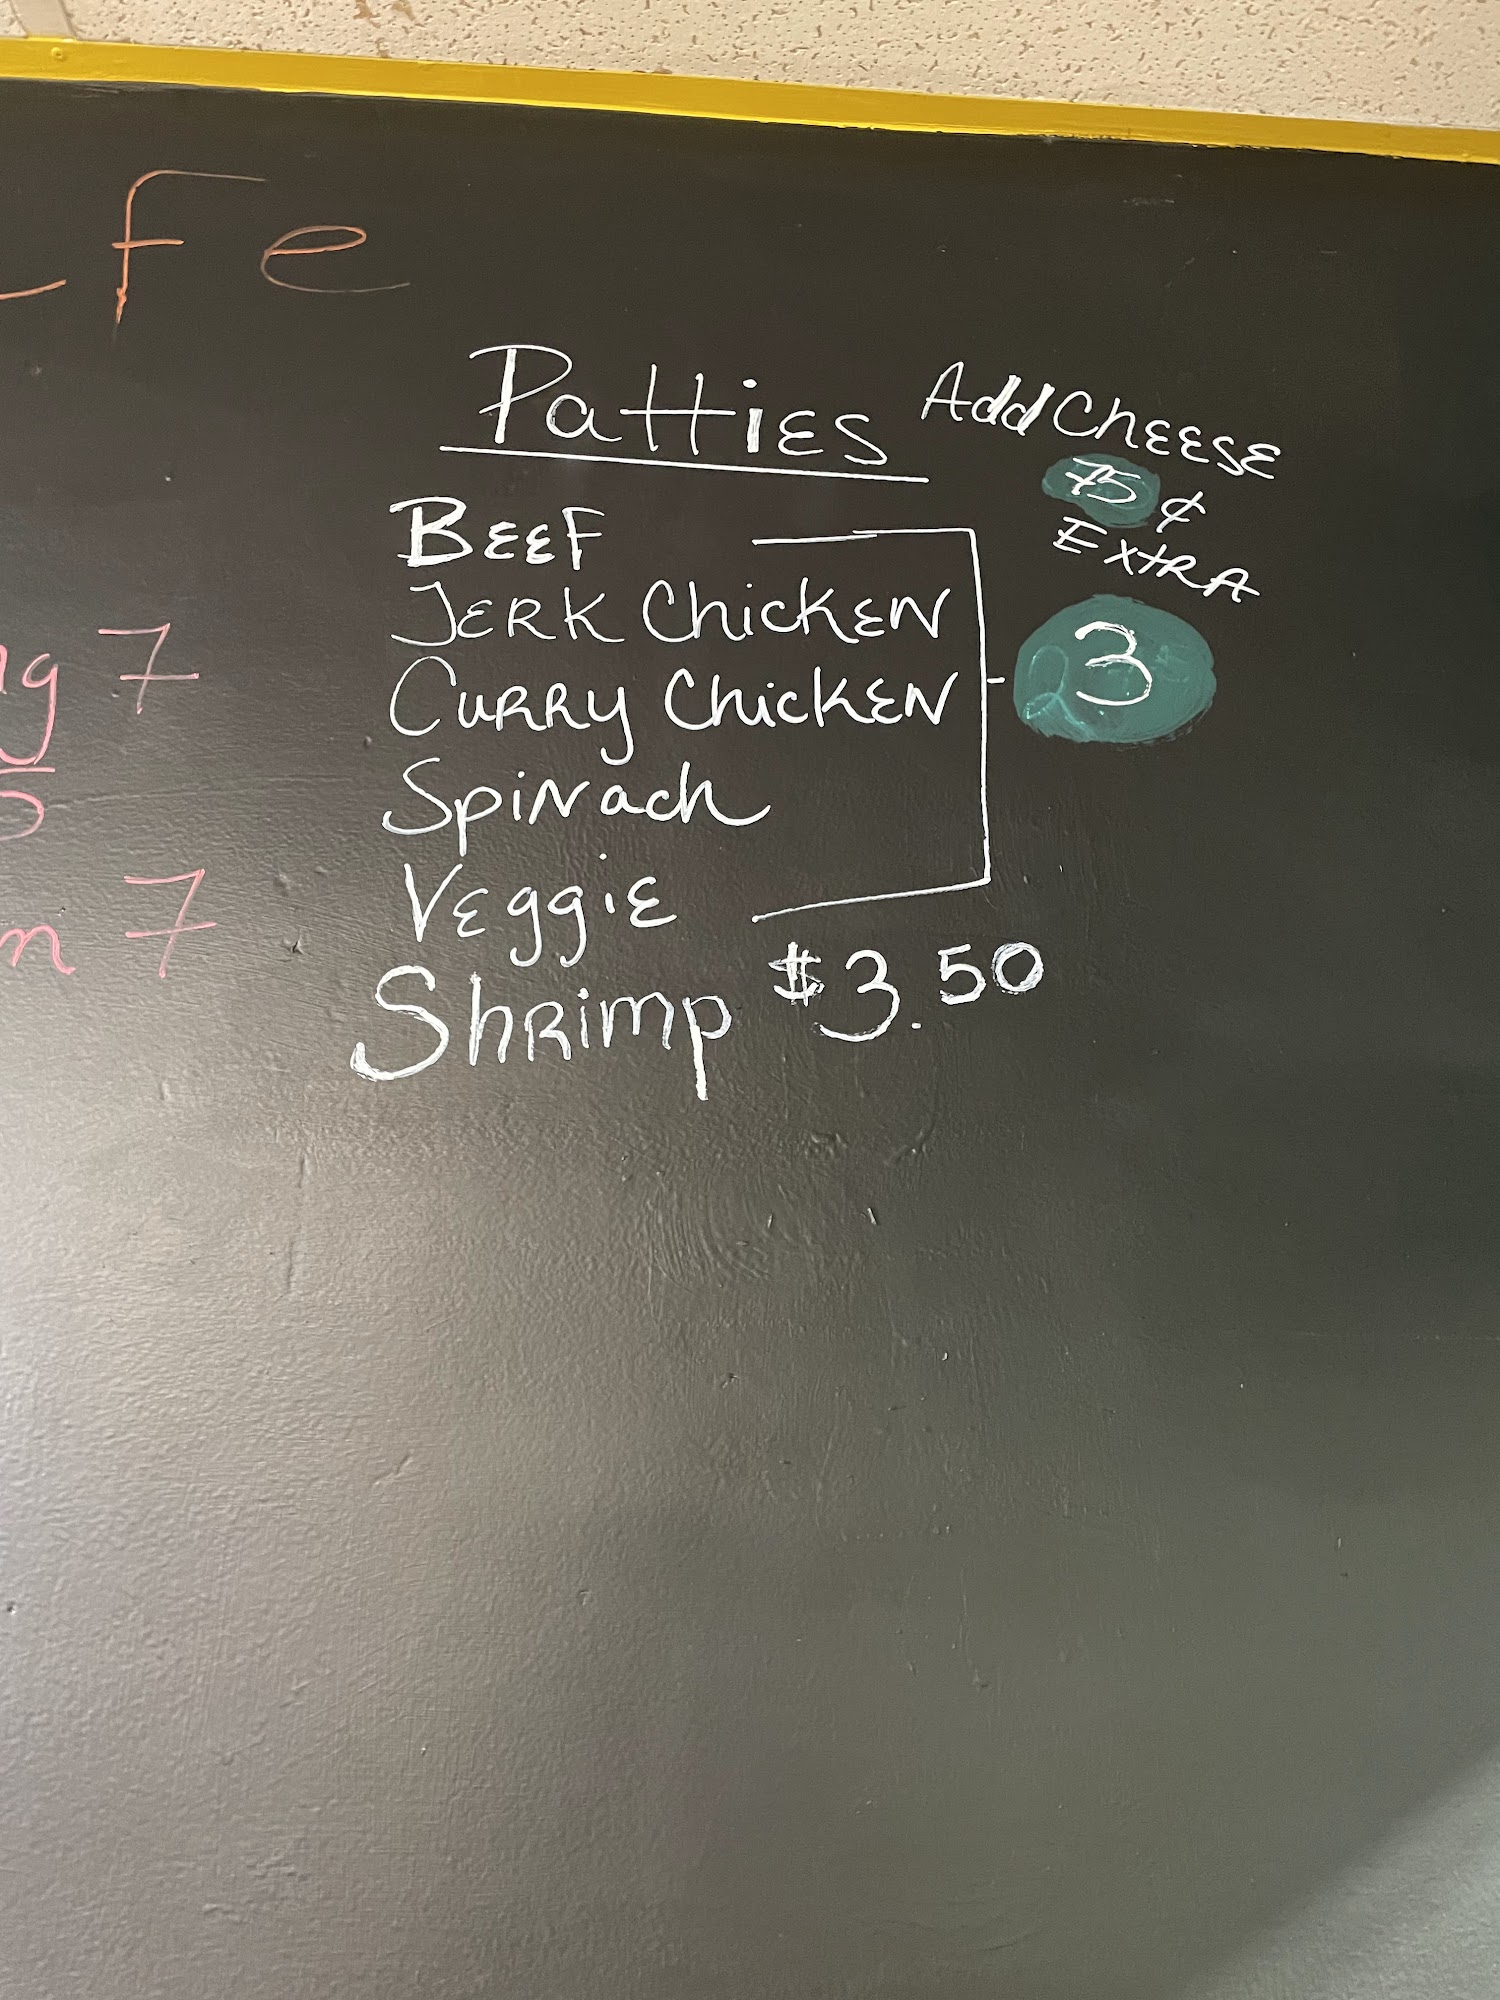 Fe
Patties
Add Cheese
75¢
Extra
Beef
Jerk Chicken
Curry Chicken
Spinach
Veggie
3
Shrimp $3.50
7
7